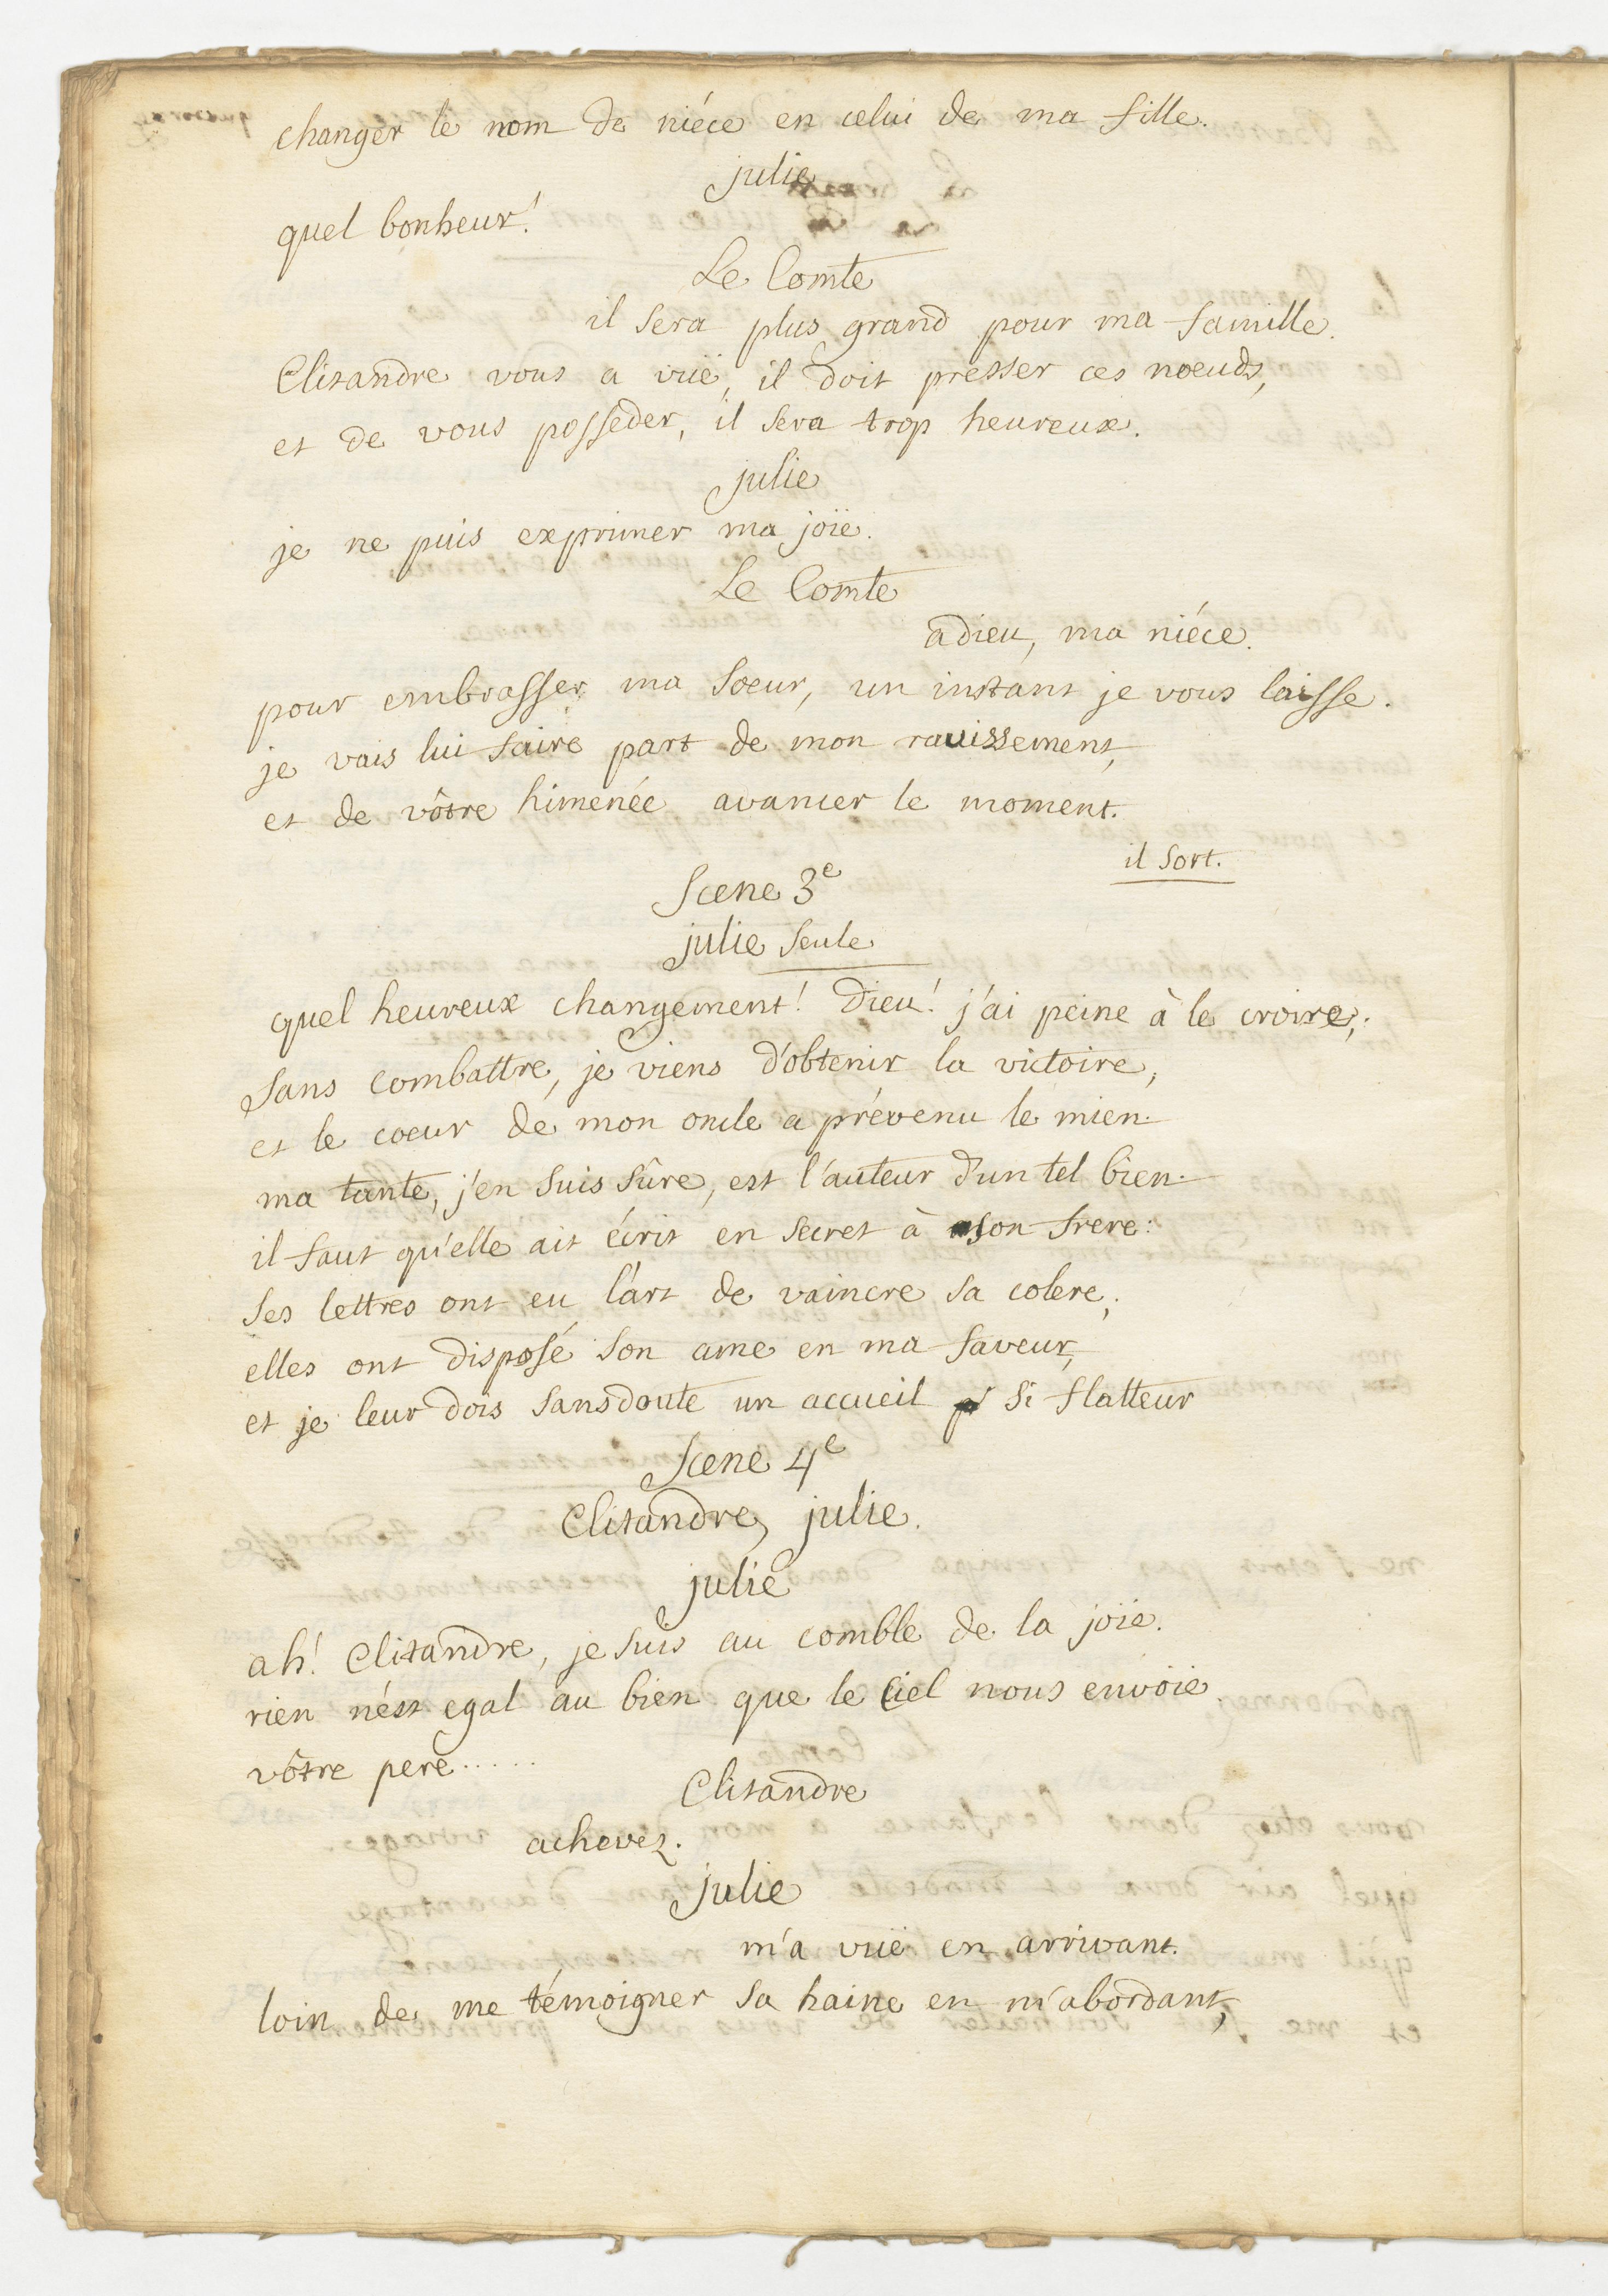 changer le nom de niéce en celui de ma fille.
julie
quel bonheur!
Le Comte
il sera plus grand pour ma famille.
Clitandre vous a vuë, il doit presser ces noeuds,
et de vous posseder, il sera trop heureux.
julie
je ne puis exprimer ma joïe.
Le Comte
adieu, ma niéce.
pour embrasser ma soeur, un instant je vous laisse.
je vais lui faire part de mon ravissement,
et de vôtre himenée avancer le moment.
il sort.
Scene 3e
julie seule
quel heureux changement! Dieu! j'ai peine à le croire;
sans combattre, je viens d'obtenir la victoire,
et le coeur de mon oncle a prévenu le mien.
ma tante, j'en suis sûre, est l'auteur d'un tel bien.
il faut qu'elle ait écrit en secret à son frere:
ses lettres ont eu l'art de vaincre sa colere;
elles ont disposé son ame en ma faveur,
et je leur dois sansdoute un accueil si flatteur
Scene 4e
Clitandre, julie.
julie
ah! Clitandre, je suis au comble de la joïe.
rien n'est egal au bien que le Ciel nous envoïe.
vôtre pere......
Clitandre
achevez.
julie
m'a vuë en arrivant.
loin de me témoigner sa haine en m'abordant,